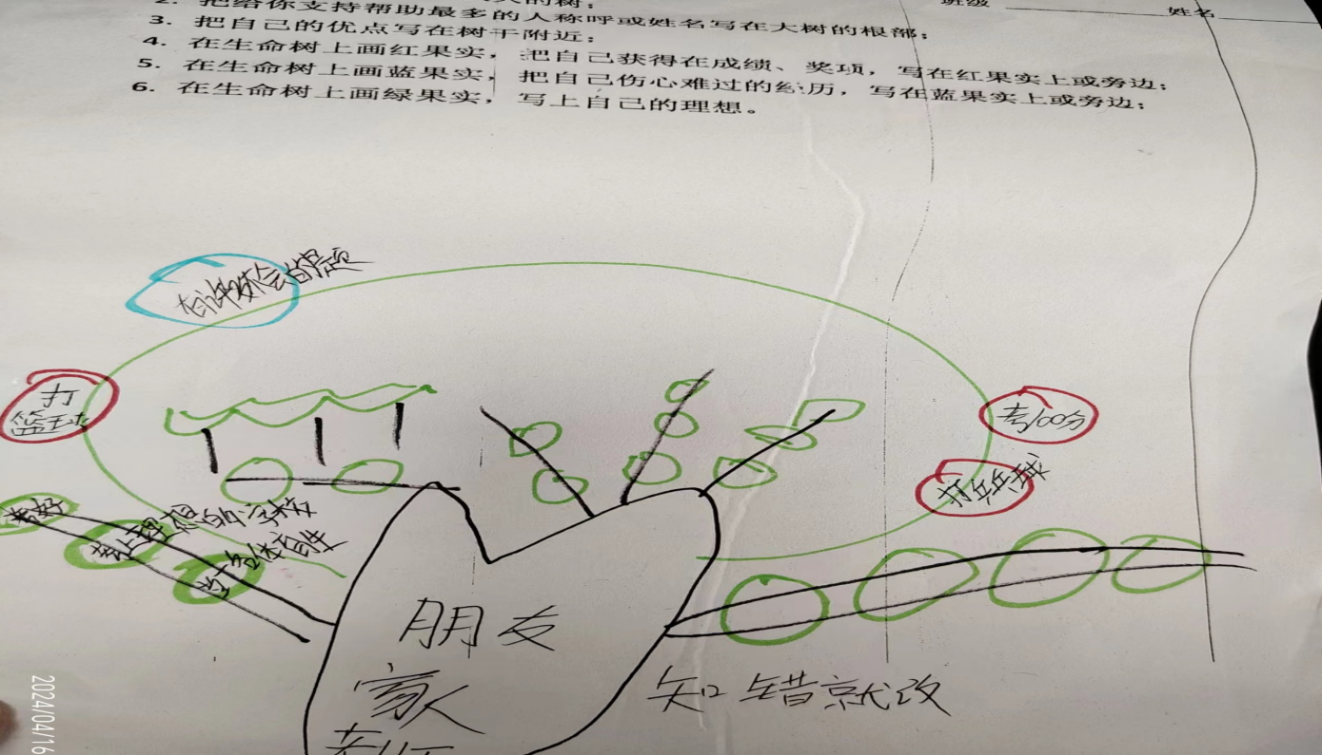 班级 姓名
2. 把给你支持帮助最多的人称呼或姓名写在大树的根部;
3. 把自己的优点写在树干附近;
4. 在生命树上画红果实,把自己获得在成绩、奖项,写在红果实上或旁边;
5. 在生命树上画蓝果实,把自己伤心难过的经历,写在蓝果实上或旁边;
6. 在生命树上画绿果实,写上自己的理想。
有许多不会的题
打
篮球
考100分
打乒乓球
考好
考上理想的学校
当一名体育生
朋友
家人
老师
知错就改
2024/04/16